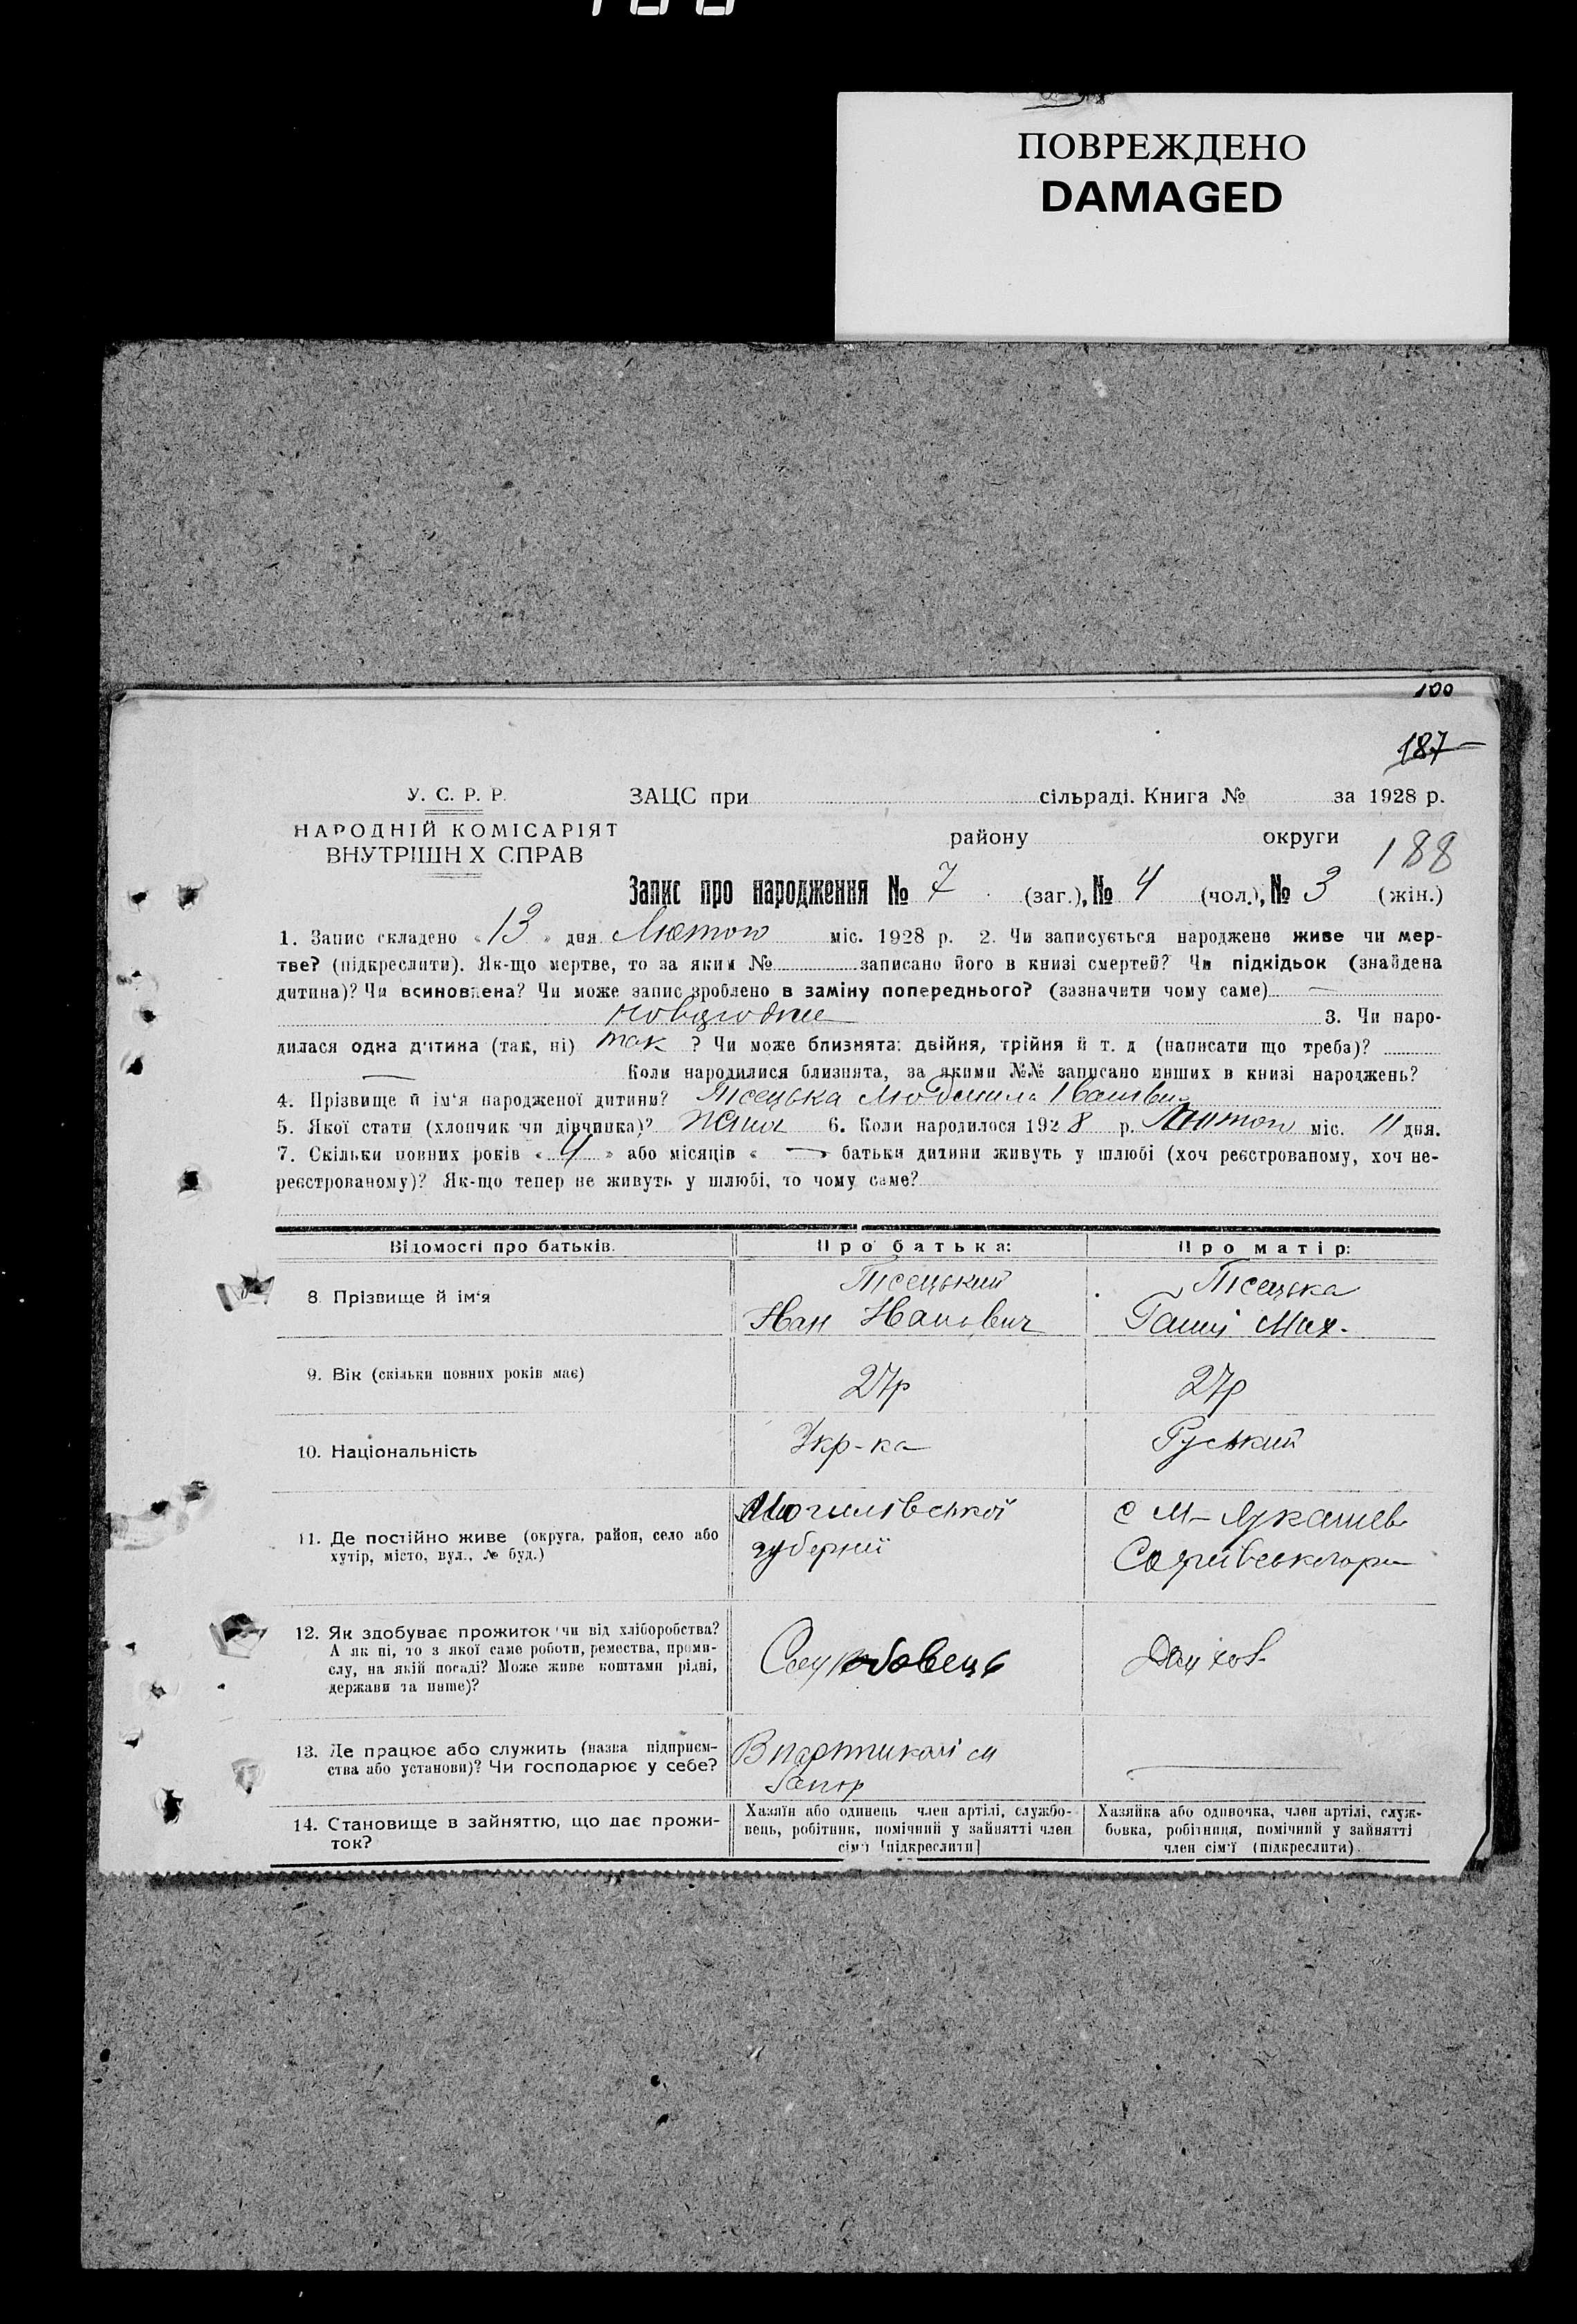 ПОВРЕЖДЕНО
DAMAGED
100
187
У. С. Р. Р.
ЗАЦС при сільраді. Книга № за 1928 р.
НАРОДНІЙ КОМІСАРІЯТ
району округи
ВНУТРІШН Х СПРАВ
188
Запис про народження № 7 (заг.), № 4 (чол.), № 3 (жін.)
1. Запис складено « 13 » дня Лютого міс. 1928 р. 2. Чи записується народжене живе чи мер-
тве? (підкреслити). Як-що мертве, то за яким № записано його в книзі смертей? Чи підкідьок (знайдена
дитина)? Чи всиновлена? Чи може запис зроблено в заміну попереднього? (зазначити чому саме) —
3. Чи наро-
дилася одна дитина (так, ні) так ? Чи може близнята: двійня, трійня й т. д (написати що треба)?
— Коли народилися близнята, за якими №№ записано инших в книзі народжень?
4. Прізвище й ім'я народженої дитини? Людмила
5. Якої стати (хлопчик чи дівчинка)? 6. Коли народилося 1928 р. Лютого міс. 11 дня.
7. Скільки повних років « 4 » або місяців « — » батьки дитини живуть у шлюбі (хоч реєстрованому, хоч не-
реєстрованому)? Як-що тепер не живуть у шлюбі, то чому саме?
Відомості про батьків. Про батька: Про матір:
8. Прізвище й ім'я
Іван Іванович
9. Вік (скільки повних років має) 27р 27р
10. Національність Укр-ка Руський
11. Де постійно живе (округа, район, село або
хутір, місто, вул., № буд.)
Могилівської
губернії
с М-Лукашев
12. Як здобуває прожиток чи від хліборобства?
А як ні, то з якої саме роботи, ремества, проми-
слу, на якій посаді? Може живе коштами рідні,
держави та инше)?
13. Де працює або служить (назва підприєм-
ства або установи)? Чи господарює у себе?
Запор
—
14. Становище в зайняттю, що дає прожи-
ток?
Хазяїн або одинець член артілі, службо-
вець, робітник, помічний у зайнятті член
сім'ї [підкреслити]
Хазяйка або одиночка, член артілі, служ-
бовка, робітниця, помічний у зайнятті
член сім'ї (підкреслити).